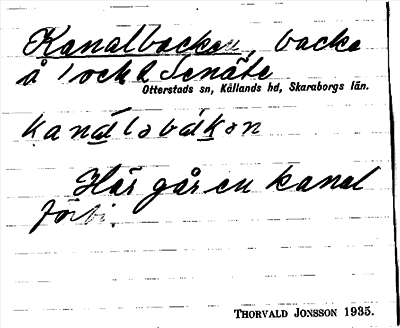 Kanalbacken, backe
å 1 och 2 Senäte
Otterstads sn, Kållands hd, Skaraborgs län.
kanálabákan
Här går en kanal
förbi.
THORVALD JONSSON 1935.